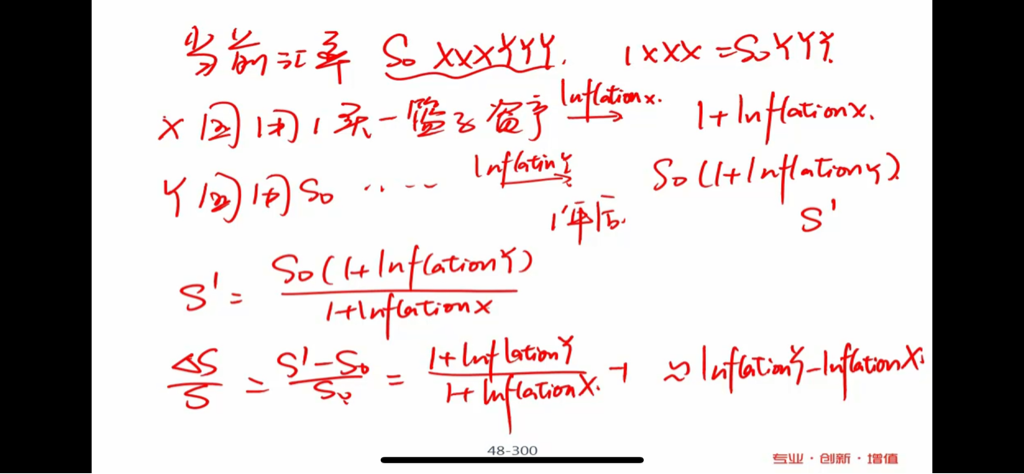 当前汇率 S0 XXXYYY. 1XXX=S0YYY.
X国用1买一篮子资产 Inflationx. → 1+Inflationx.
Y国用S0 ...... InflatinY → 1年后. S0(1+InflationY)
S'
S' = S0(1+InflationY) / 1+InflationX
ΔS/S = S'-S0/S0 = 1+InflationY/1+InflationX. -1 ≈ InflationY-InflationX.
48-300
专业·创新·增值